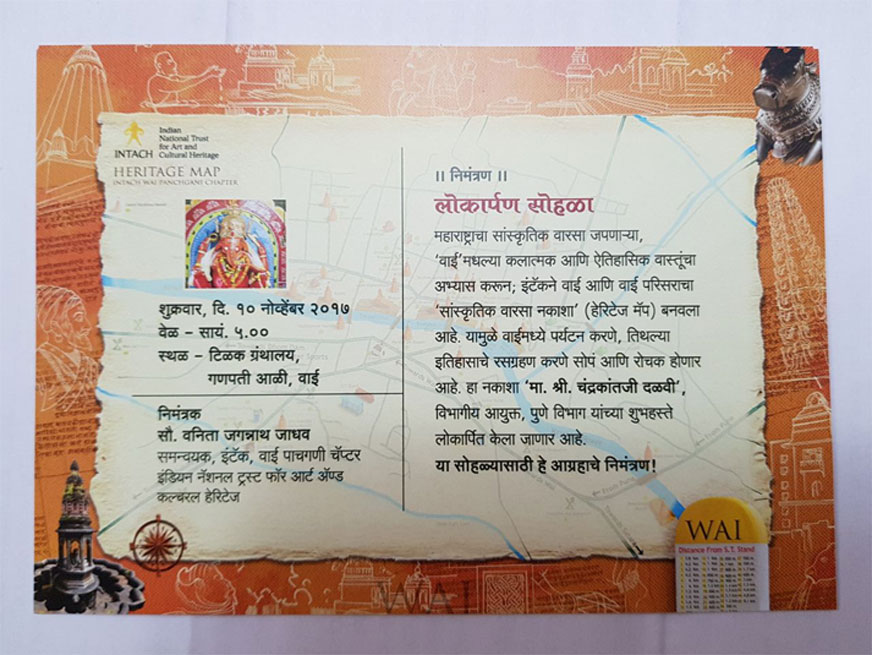 INTACH
Indian
National Trust
for Art and
Cultural Heritage
HERITAGE MAP
INTACH WAI PANCHGANI CHAPTER
शुक्रवार, दि. १० नोव्हेंबर २०१७
वेळ – सायं. ५.००
स्थळ – टिळक ग्रंथालय,
गणपती आळी, वाई
निमंत्रक
सौ. वनिता जगन्नाथ जाधव
समन्वयक, इंटॅक, वाई पाचगणी चॅप्टर
इंडियन नॅशनल ट्रस्ट फॉर आर्ट ॲण्ड
कल्चरल हेरिटेज
।। निमंत्रण ।।
लोकार्पण सोहळा
महाराष्ट्राचा सांस्कृतिक वारसा जपणाऱ्या,
‘वाई’मधल्या कलात्मक आणि ऐतिहासिक वास्तूंचा
अभ्यास करून; इंटॅकने वाई आणि वाई परिसराचा
‘सांस्कृतिक वारसा नकाशा’ (हेरिटेज मॅप) बनवला
आहे. यामुळे वाईमध्ये पर्यटन करणे, तिथल्या
इतिहासाचे रसग्रहण करणे सोपं आणि रोचक होणार
आहे. हा नकाशा ‘मा. श्री. चंद्रकांतजी दळवी’,
विभागीय आयुक्त, पुणे विभाग यांच्या शुभहस्ते
लोकार्पित केला जाणार आहे.
या सोहळ्यासाठी हे आग्रहाचे निमंत्रण!
WAI
Distance From S.T. Stand
WAI